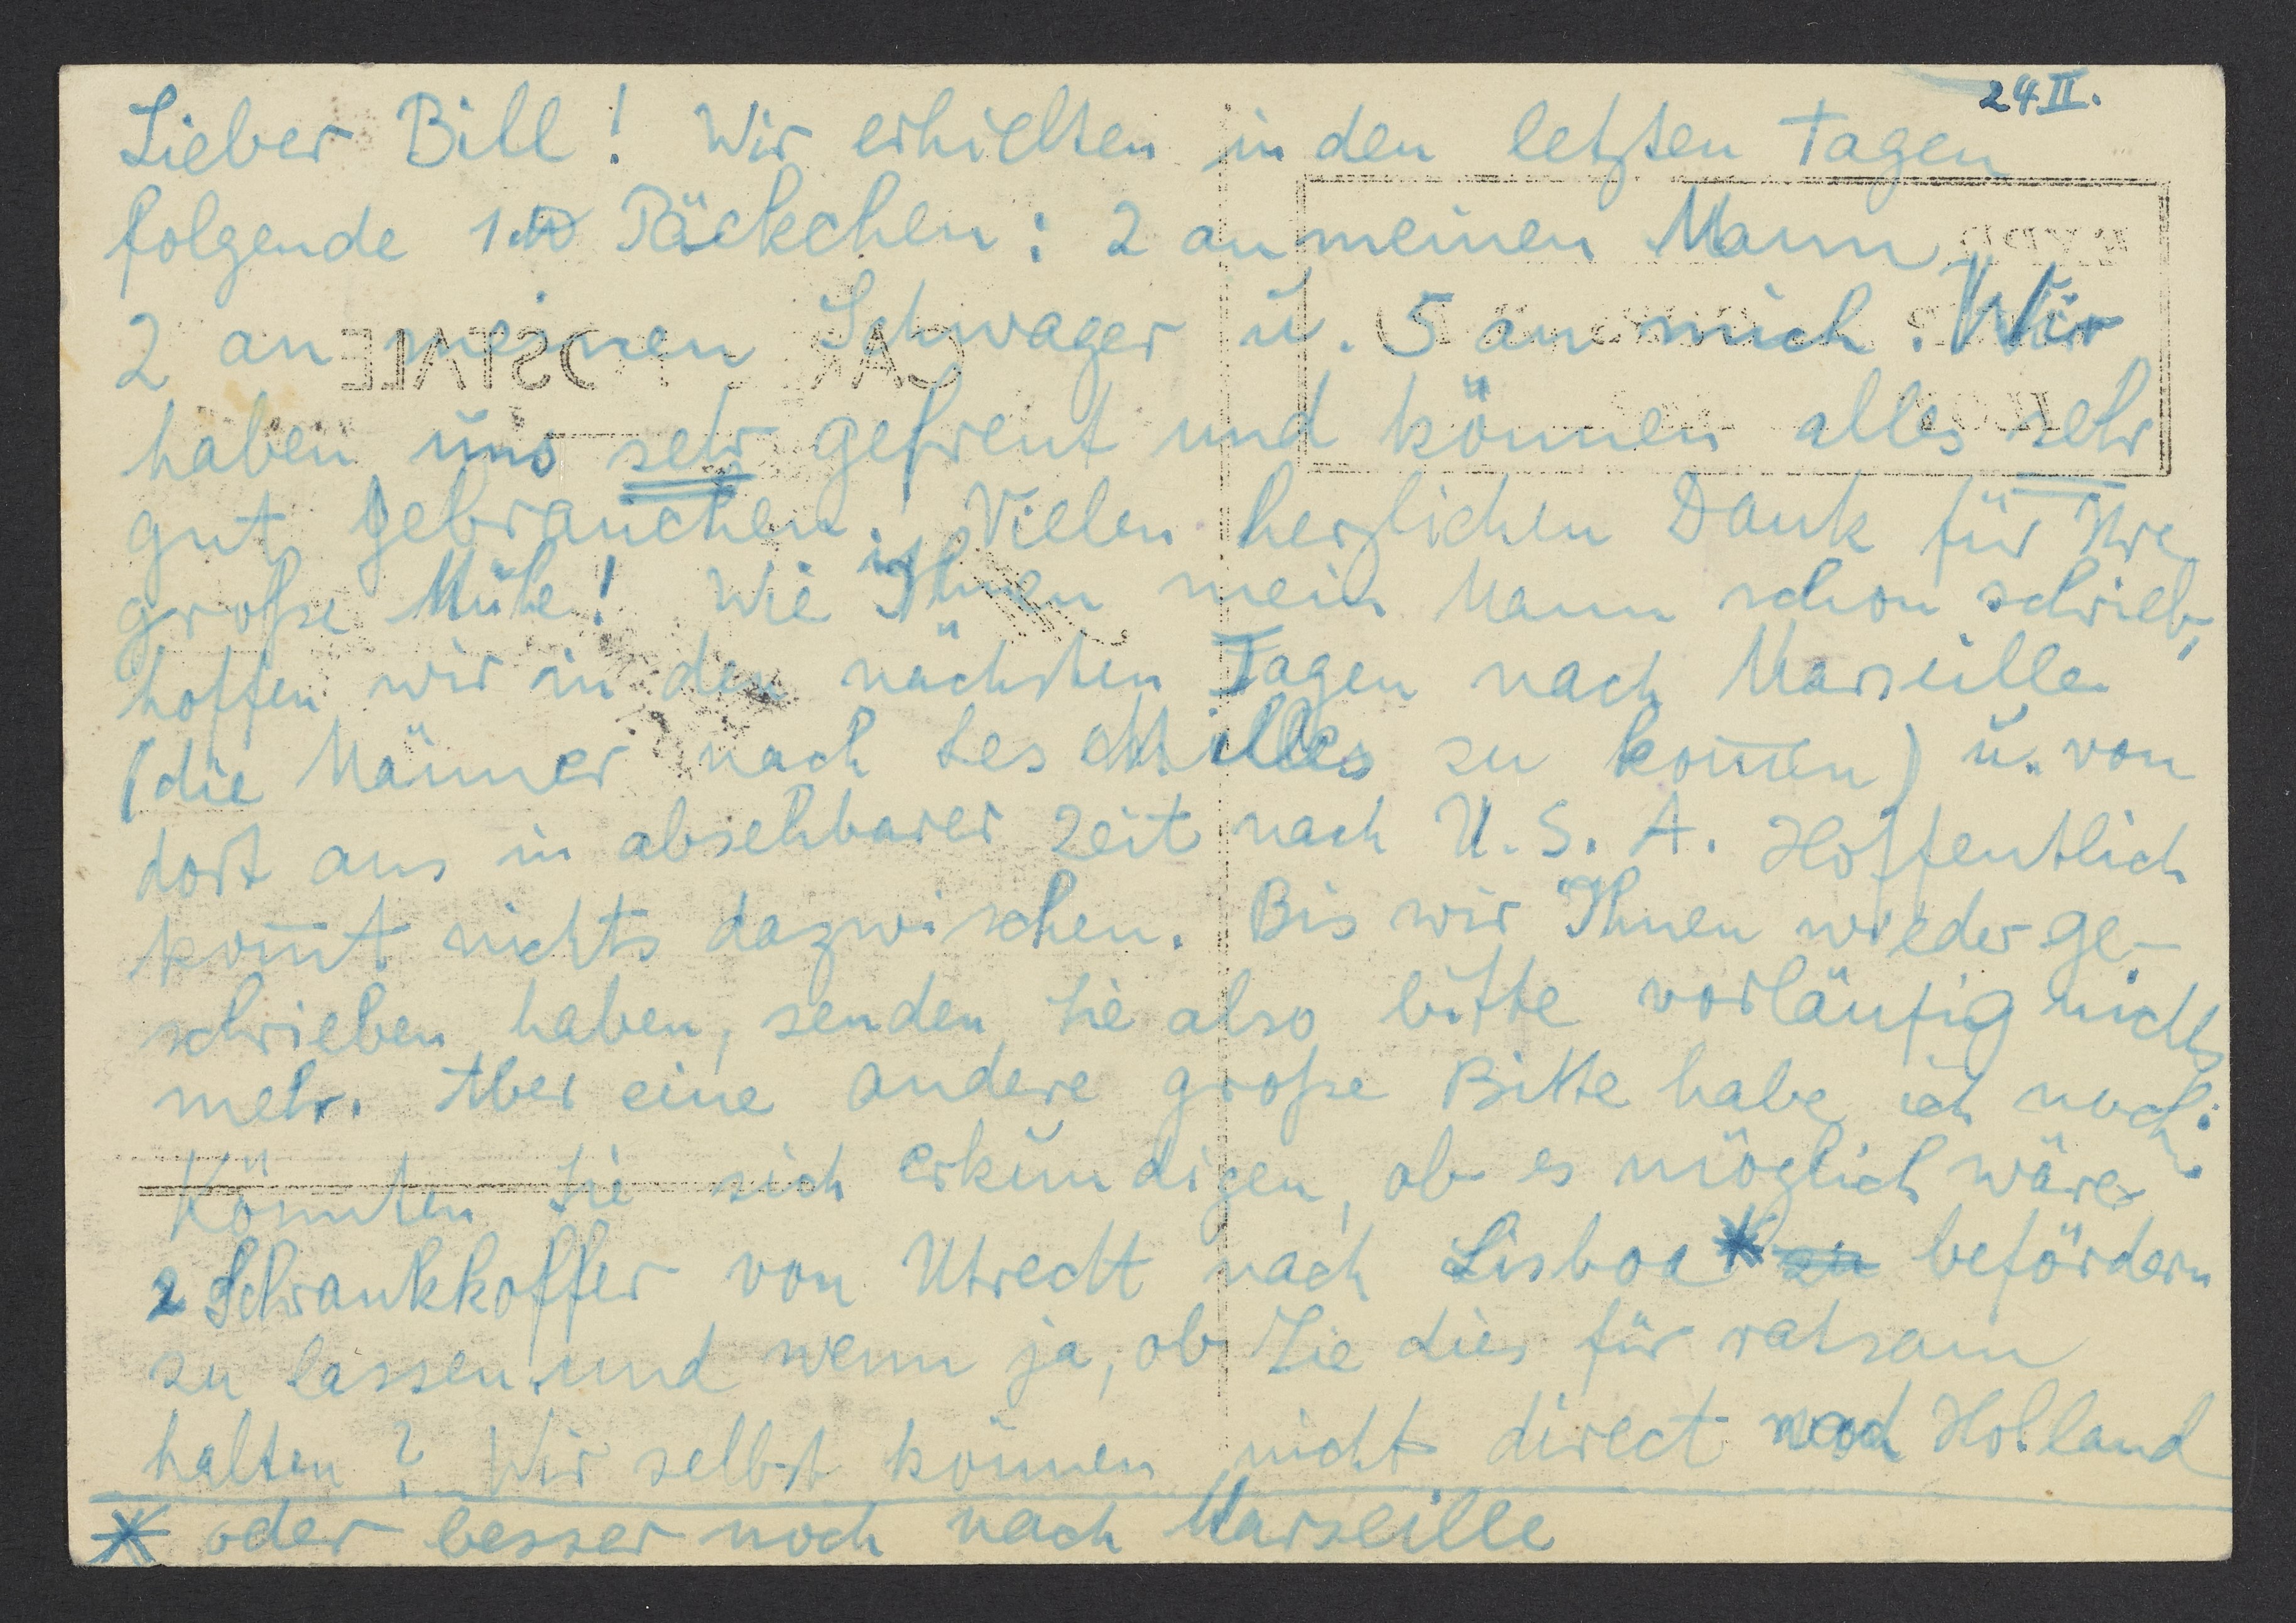 24 II.
Lieber Bill! Wir erhielten in den letzten Tagen
folgende Päckchen: 2 an meinen Mann
2 an meinen Schwager u. 5 an mich. Wir
haben uns sehr gefreut und können alles sehr
gut gebrauchen. Vielen herzlichen Dank für Ihre
große Mühe! Wie Ihnen mein Mann schon schrieb,
hoffen wir in den nächsten Tagen nach Marseille
(die Männer nach Les Milles zu kom̅en) u. von
dort aus in absehbarer Zeit nach U.S.A. Hoffentlich
kom̅t nichts dazwischen. Bis wir Ihnen wieder ge-
schrieben haben, senden Sie also bitte vorläufig nichts
mehr. Aber eine andere große Bitte habe ich noch:
Könnten Sie sich erkundigen, ob es möglich wäre
2 Schrankkoffer von Utrecht nach Lisboa * zu befördern
zu lassen und wenn ja, ob Sie dies für ratsam
halten? Wir selbst können nicht direct nach Holland
* oder besser noch nach Marseille
CAR POSTALE